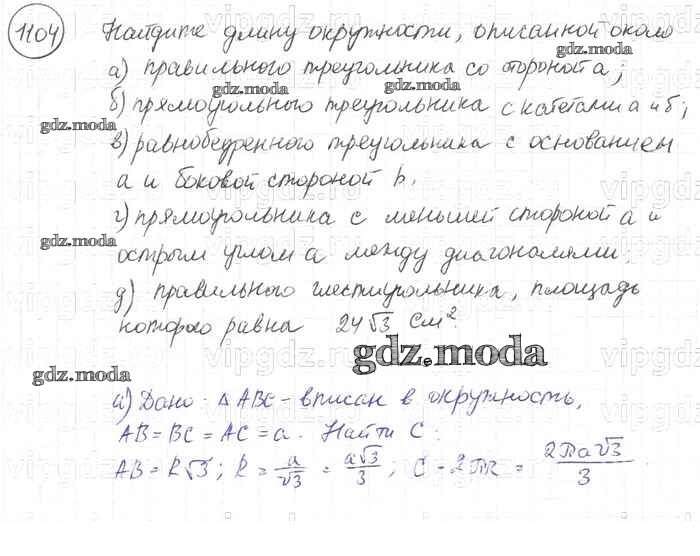 1104 Найдите длину окружности, описанной около
gdz.moda
а) правильного треугольника со стороной a;
gdz.moda
б) прямоугольного треугольника с катетами a и b;
gdz.moda
в) равнобедренного треугольника с основанием
a и боковой стороной b.
г) прямоугольника с меньшей стороной a и
gdz.moda
острым углом α между диагоналями;
д) правильного шестиугольника, площадь
которого равна 24√3 см².
gdz.moda
gdz.moda
а) Дано: △ ABC - вписан в окружность,
AB = BC = AC = a. Найти C.
AB = R√3; R = a/√3 = a√3/3; C - 2πR = 2πa√3/3